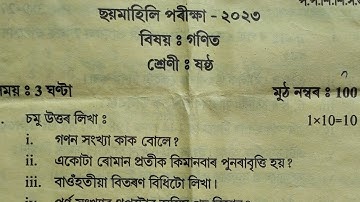 ছয়মাহিলি পৰীক্ষা - ২০২৩
বিষয় ঃ গণিত
শ্ৰেণী ঃ ষষ্ঠ
সময় ঃ 3 ঘণ্টা মুঠ নম্বৰ ঃ 100
চমু উত্তৰ লিখা ঃ 1×10=10
i. গণন সংখ্যা কাক বোলে?
ii. একোটা ৰোমান প্ৰতীক কিমানবাৰ পুনৰাবৃত্তি হয়?
iii. বাওঁহতীয়া বিতৰণ বিধিটো লিখা।